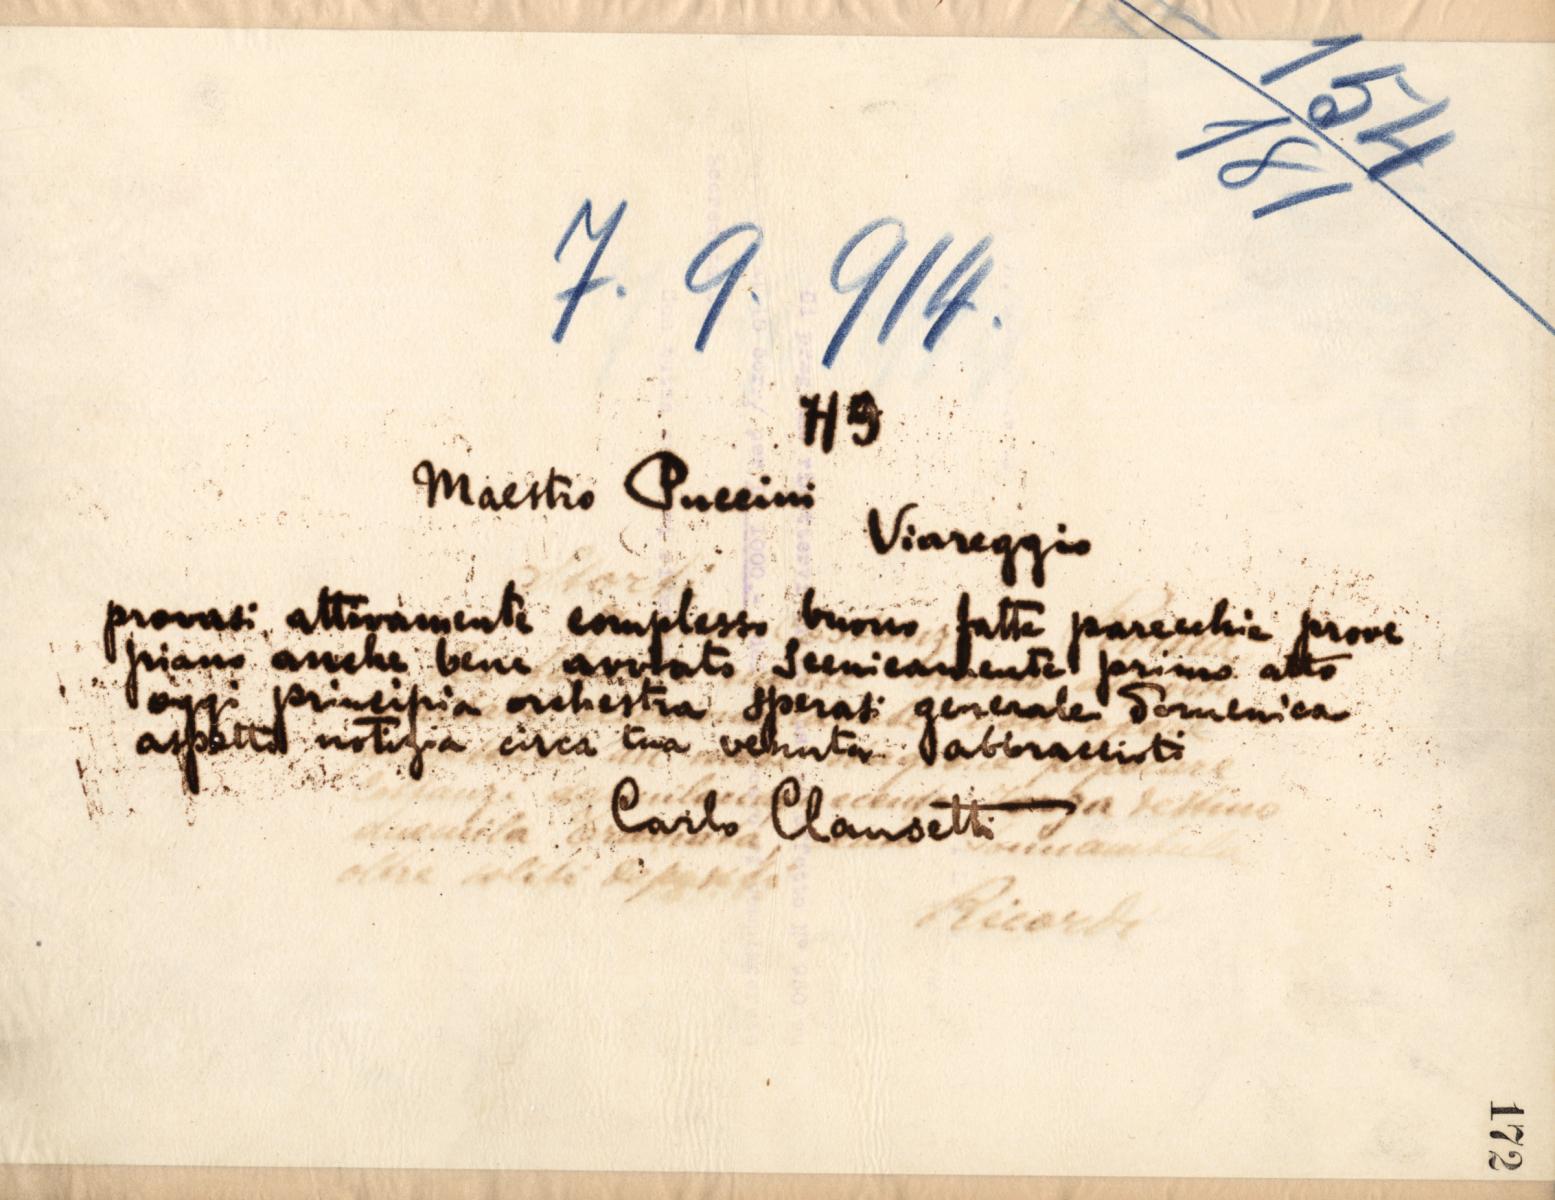 154
181
7. 9. 914.
H9
Maestro Puccini
Viareggio
provasi attivamente complesso buono fatte parecchie prove
piano anche bene avviato scenicamente primo atto
oggi principia orchestra sperasi generale Domenica
aspetto notizia circa tua venuta abbraccioti
Carlo Clausetti
oltre soliti depositi
Ricordi
172